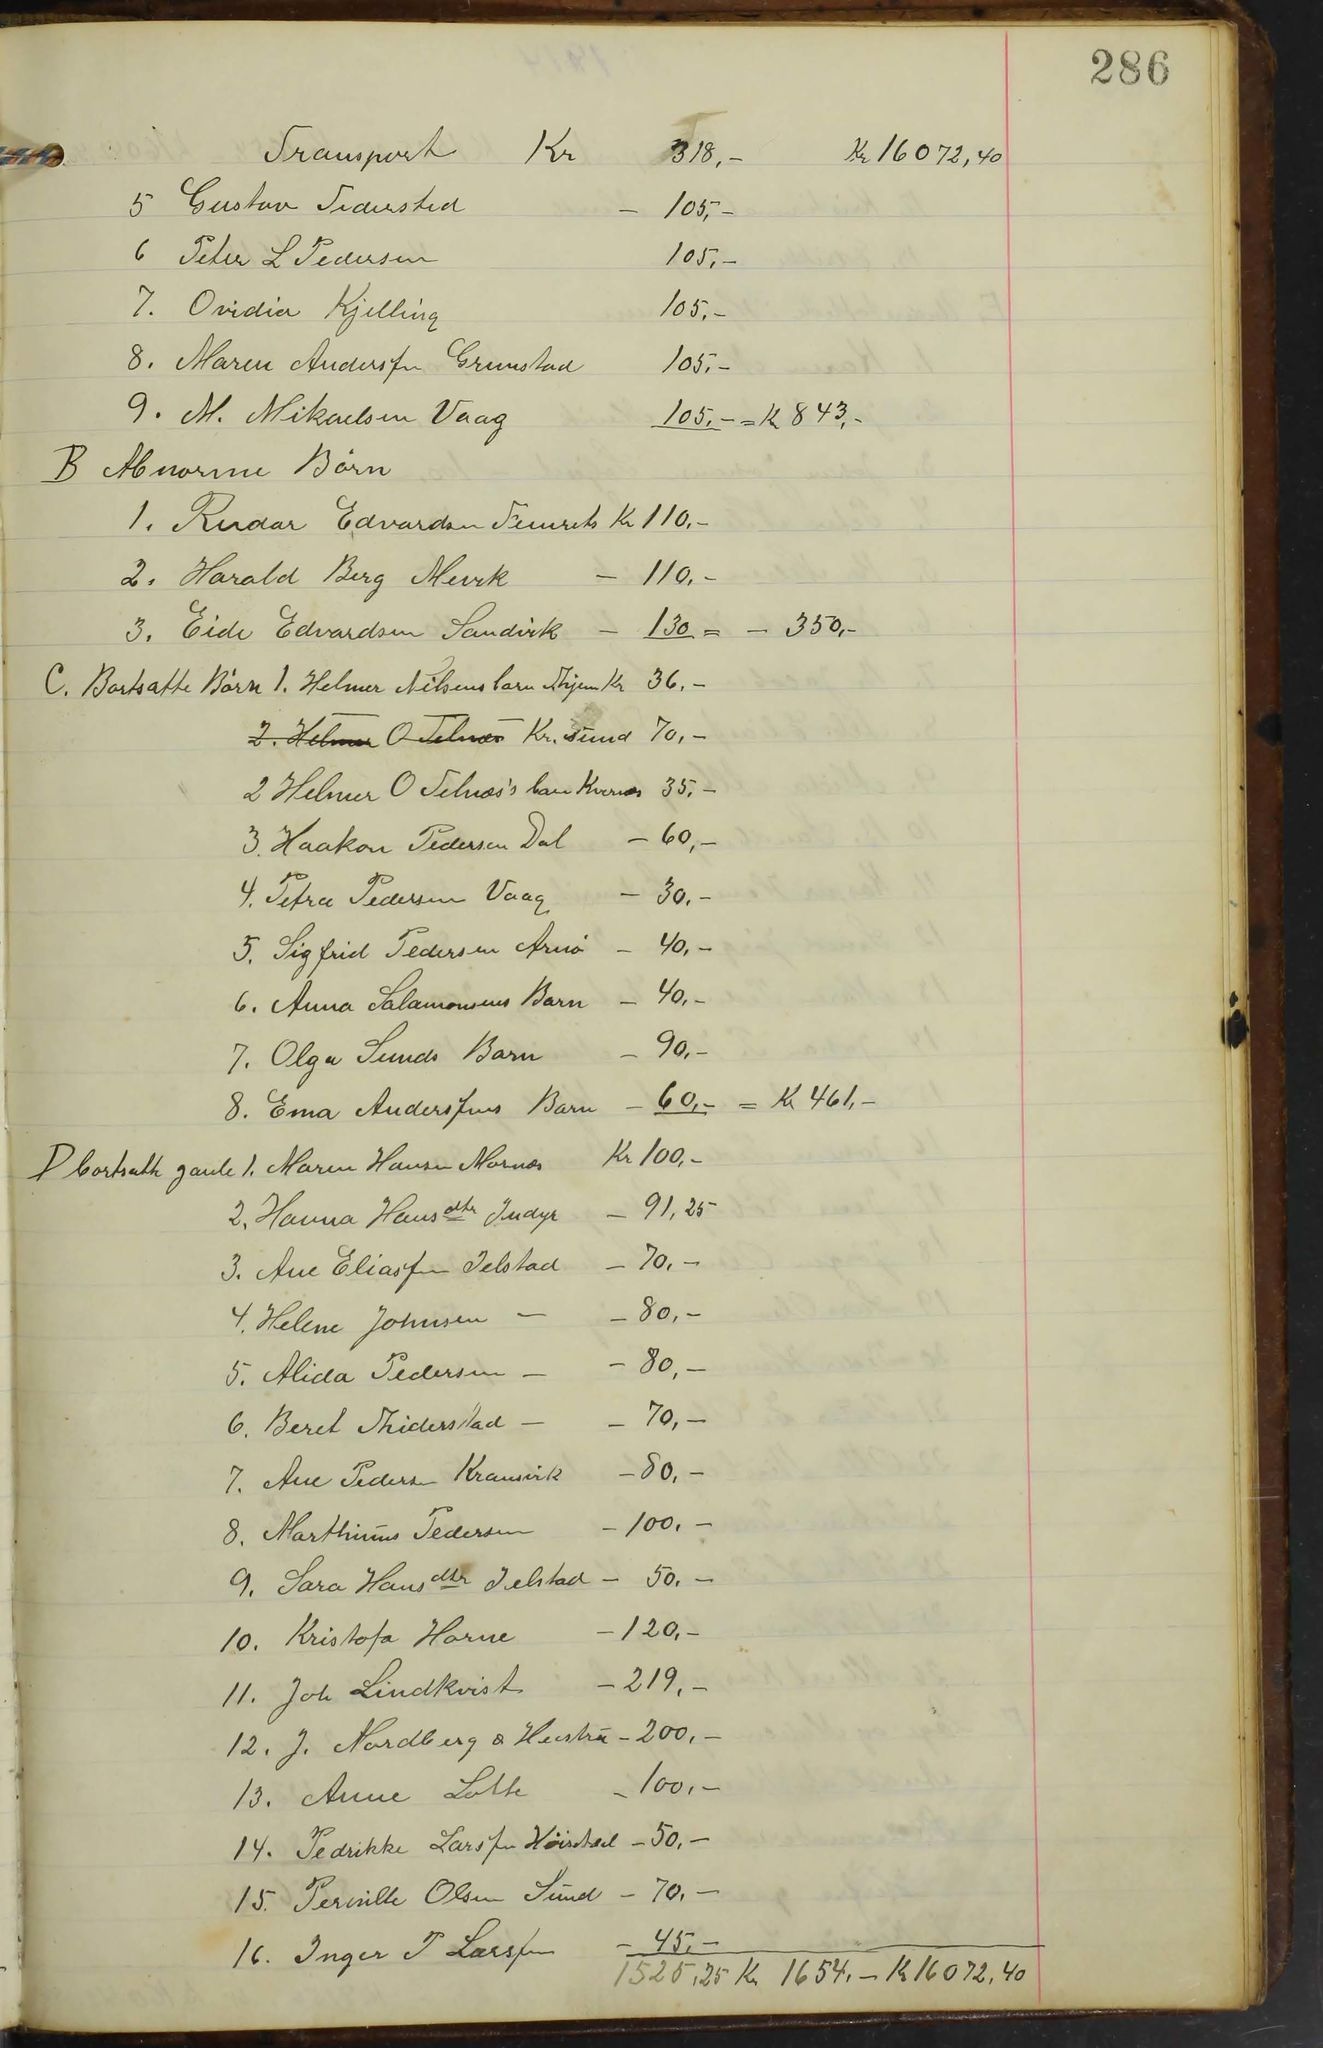 286
Transport Kr 318,- Kr 16072,40
5 Gustav Federsted - 105,-
6 Peter L Pedersen 105,-
7. Ovidia Kjelling 105,-
8. Maren Andersen Grimstad 105,-
9. M. Mikaelsen Vaag 105,- = Kr 843,-
B Abnorme Børn
1. Rudar Edvardsen Kr 110,-
2. Harald Berg Mevik - 110,-
3. Eide Edvardsen Sandvik - 130 = - 350,-
C. Bortsatte Børn 1. Helmer Nilsens barn Kr 36,-
2. Helmer O Telnes Kr. Sund 70,-
2 Helmer O Telnæs's barn Kvernæs 35,-
3. Haakon Pedersen Dal - 60,-
4. Petra Pedersen Vaag - 30,-
5. Sigfrid Pedersen Arnø - 40,-
6. Anna Salamonsens Barn - 40,-
7. Olga Sunds Barn - 90,-
8. Ema Andersens Barn - 60,- = Kr 461,-
D bortsatte gamle 1. Maren Hansen Mornæs Kr 100,-
2. Hanna Hansdtr Indyr - 91,25
3. Ane Eliassen Telstad - 70,-
4. Helene Johnsen - - 80,-
5. Alida Pedersen - - 80,-
6. Beret - - 70,-
7. Ane Pedersen Kransvik - 80,-
8. Marthinus Pedersen - 100,-
9. Sara Hansdtr Telstad - 50,-
10. Kristofa Horne - 120,-
11. Joh Lindkvist - 219,-
12. J. Nordberg & Hustru - 200,-
13. Anne Lotte - 100,-
14. Pedrikke Larsen - 50,-
15. Pernille Olsen Sund - 70,-
16. Inger P Larsen - 45,-
1525,25 Kr 1654,- Kr 16072,40